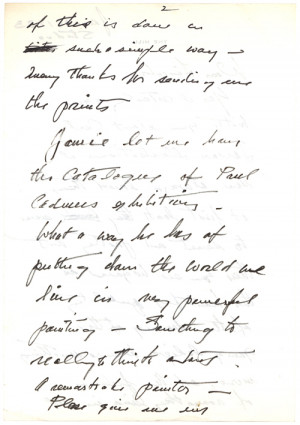 2
of this is done in
such a simple way –
many thanks for sending me
the prints
Jamie let me have
the Catalogue of Paul
Cadmus exhibition –
What a way he has of
putting down the world we
live in very powerful
painting – Something to
really think about.
A remarkable painter –
Please give me his